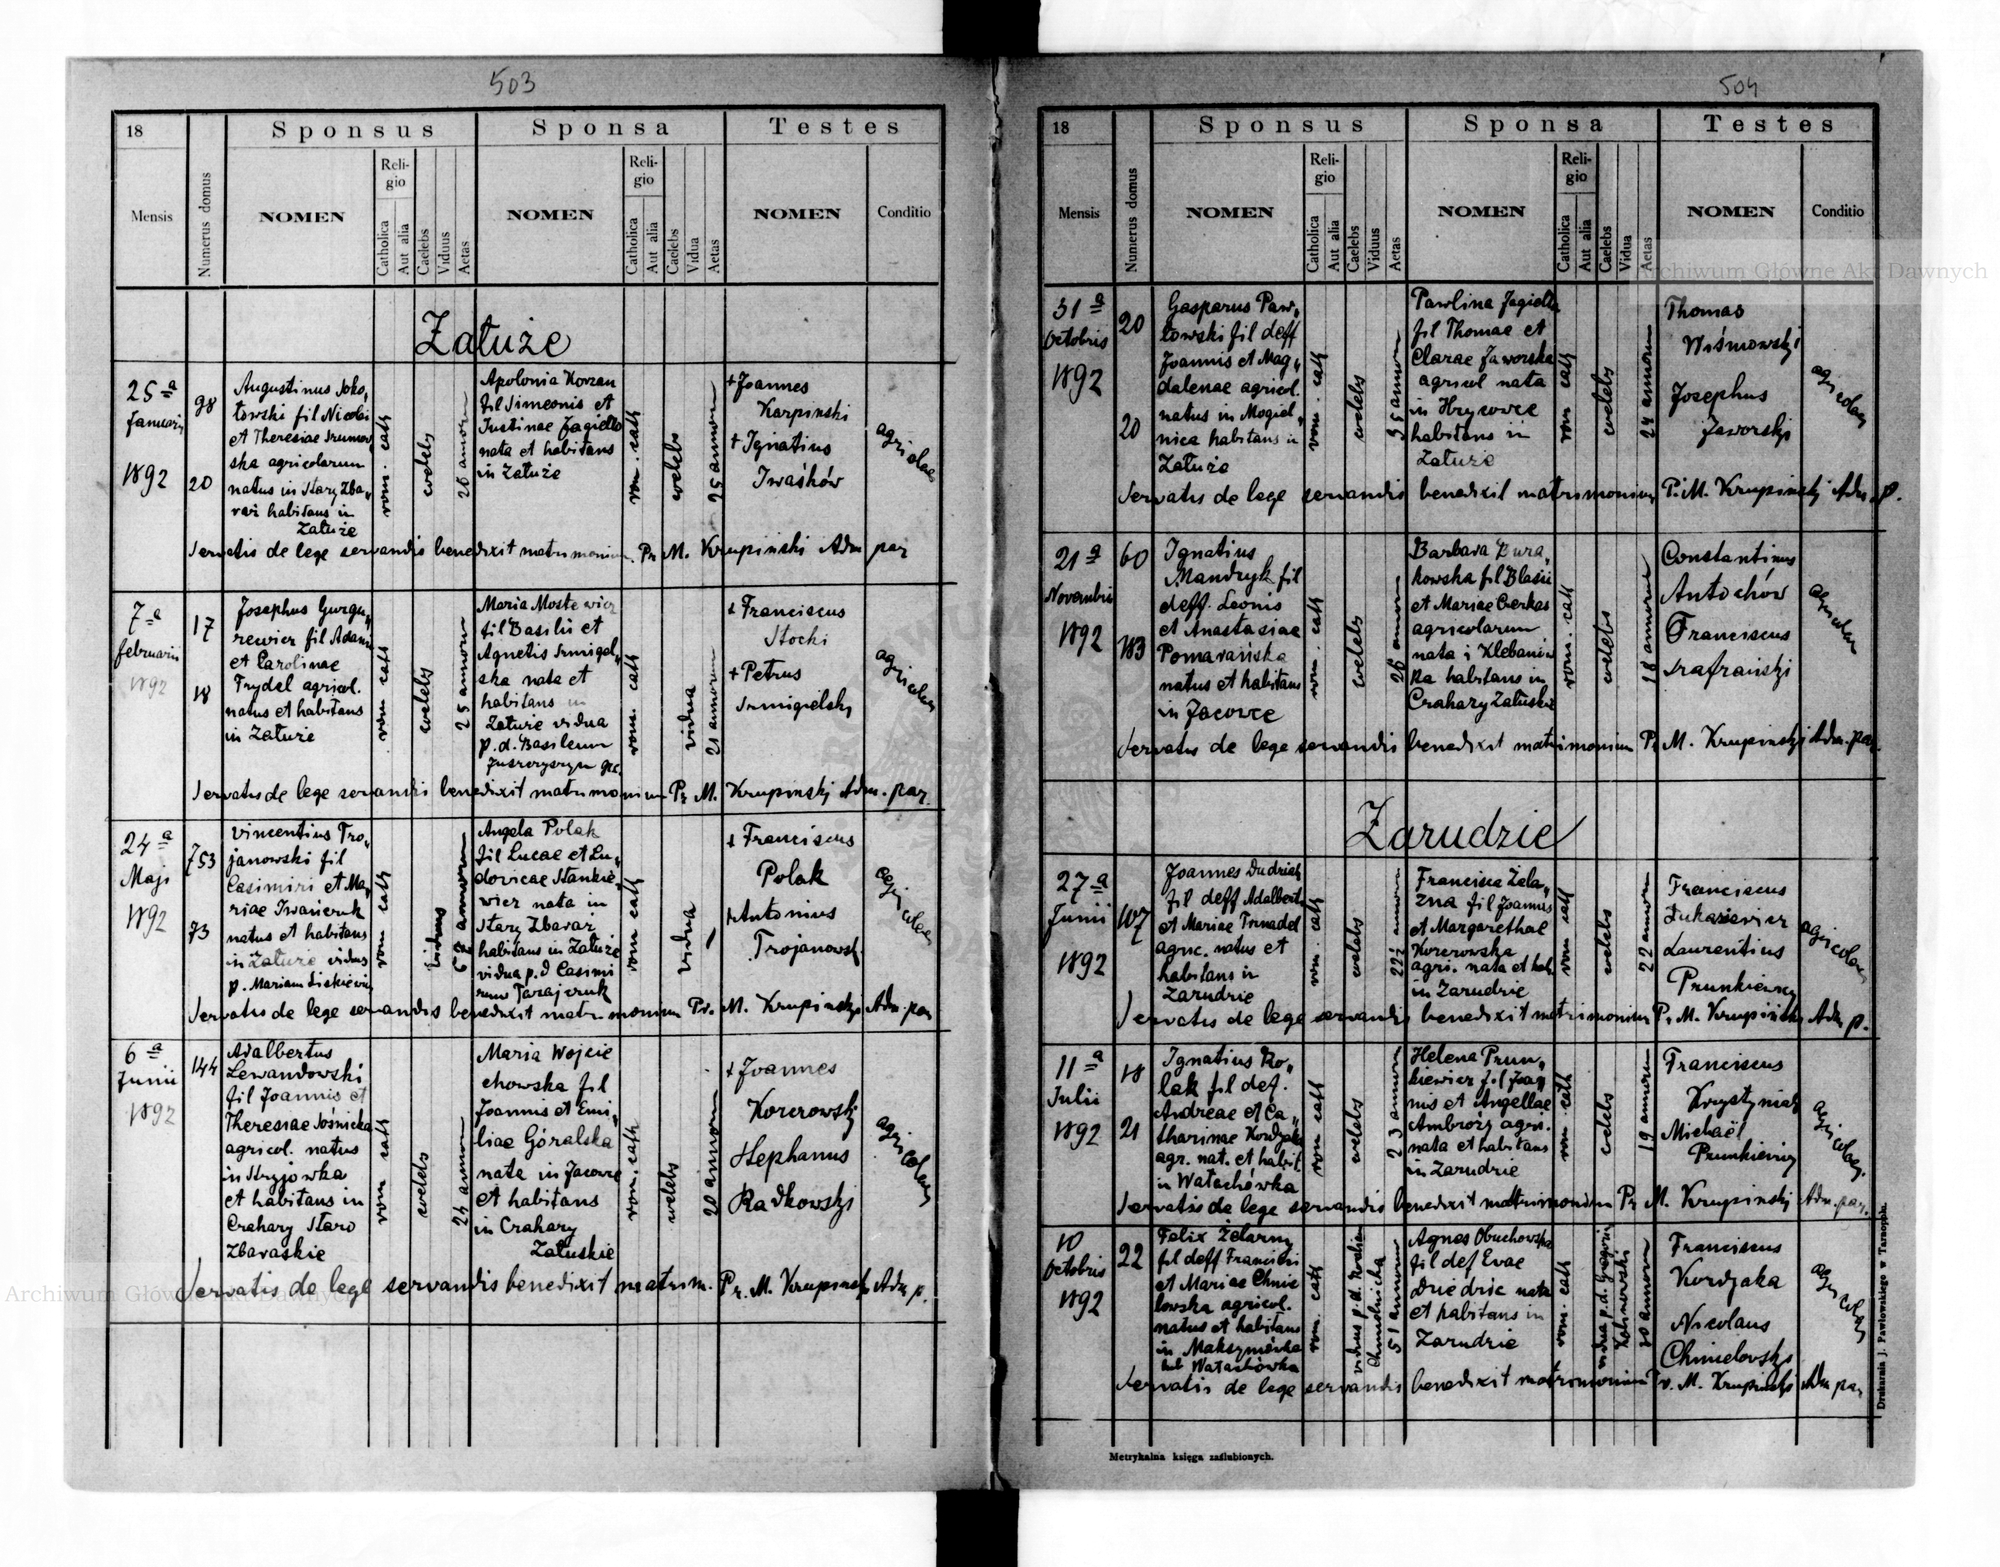 503
18
Sponsus
Sponsa
Testes
Mensis
Numerus domus
NOMEN
Religio
Catholica
Aut alia
Caelebs
Viduus
Aetas
NOMEN
Religio
Catholica
Aut alia
Caelebs
Vidua
Aetas
NOMEN
Conditio
Załuże
25a
Januarii
1892
98
20
Augustinus Soko„
łowski fil Nicolai
et Theresiae
ska agricolarum
natus in Stary Zba„
raż habitans in
Załuże
rom. cath
coelebs
26 annorum
Apolonia Korzan
fil Simeonis et
Justinae Jagiełło
nata et habitans
in Załuże
rom. cath
coelebs
25 annorum
+ Joannes
Karpinski
+ Ignatius
Iwaśków
agricolae
Servatis de lege servandis benedixit matrimonium Pr M. Krupiński Adm par
7a
februarii
1892
17
18
Josephus Gurgu„
rewicz fil Adami
et Carolinae
Frydel agricol.
natus et habitans
in Załuże
rom cath
coelebs
25 annorum
Maria Mostewicz
fil Basilii et
Agnetis Smigel„
ska nata et
habitans in
Załuże vidua
p. d. Basileum
rom. cath
vidua
21 annorum
+ Franciscus
Stochi
+ Petrus
Smigielsky
agricolae
Servatis de lege servandis benedixit matrimonium Pr M. Krupinskj Adm. par.
24a
Maji
1892
753
73
Vincentius Tro„
janowski fil
Casimiri et Ma„
riae Iwańczuk
natus et habitans
in Załuże vidus
p. Mariam
rom cath
vidus
62 annorum
Angela Polak
fil Lucae et Lu„
dovicae Stankie„
wicz nata in
Stary Zbaraż
habitans in Załuże
vidua p. d Casimi
rum Tarajczuk
rom cath
vidua
+ Franciscus
Polak
+ Antonius
Trojanowsk
agricolae
Servatis de lege servandis benedixit matrimonium Pr. M. Krupinskj Adm. par
6a
Junii
1892
144
Adalbertus
Lewandowski
fil Joannis et
Theresiae Sośnicka
agricol. natus
in Stryjowka
et habitans in
Czahary Staro
Zbaraskie
rom cath
coelebs
24 annorum
Maria Wojcie
chowska fil
Joannis et Emi„
liae Góralska
nata in Jacowce
et habitans
in Czahary
Załuskie
rom. cath.
coelebs
20 annorum
+ Joannes
Kozerowskj
Stephanus
Radkowskj
agricolae
Servatis de lege servandis benedixit matrim. Pr. M. Krupinski Adm p.
504
18
Sponsus
Sponsa
Testes
Mensis
Numerus domus
NOMEN
Religio
Catholica
Aut alia
Caelebs
Viduus
Aetas
NOMEN
Religio
Catholica
Aut alia
Caelebs
Vidua
Aetas
NOMEN
Conditio
31a
Octobris
1892
20
20
Gasparus Paw„
łowski fil deff
Joannis et Mag„
dalenae agricol.
natus in Mogiel„
nica habitans in
Załuże
rom. cath
coelebs
35 annorum
Pawlina Jagiełło
fil Thomae et
Clarae Jaworska
agricol nata
in Hrycowce
habitans in
Załuże
rom cath
coelebs
24 annorum
Thomas
Wiśniowskj
Josephus
Jaworskj
agricolae
Servatis de lege servandis benedixit matrimonium Pr. M. Krupinskj Adm. p.
21a
Novembris
1892
60
183
Ignatius
Mandryk fil
deff. Leonis
et Anastasiae
Pomarańska
natus et habitans
in Jacowce
rom. cath
coelebs
26 annorum
Barbara Bura„
kowska fil Blasii
et Mariae Czerkas
agricolarum
nata i Klebanów
ka habitans in
Czahary Załuskie
rom. cath
coelebs
18 annorum
Constantinus
Antochów
Franciscus
Szafrańskj
agricolae
Servatis de lege servandis benedixit matrimonium Pr M. Krupinskj Adm. par.
Zarudzie
27a
Junii
1892
107
Joannes Dudziak
fil deff Adalberti
et Mariae Trnadel
agric. natus et
habitans in
Zarudzie
rom. cath
coelebs
222 annorum
Francisca Żela„
zna fil Joannis
et Margarethae
Kozerowska
agri. nata et hab.
in Zarudzie
rom cath
coelebs
22 annorum
Franciscus
Łukasiewicz
Laurentius
Prunkiewicz
agricolae
Servatis de lege servandis benedixit matrimonium Pr. M. Krupińskj Adm p.
11a
Julii
1892
18
21
Ignatius Po„
lak fil def.
Andreae et Ca„
tharinae Kordjaka
agr. nat. et habit.
in Watachówka
rom cath
coelebs
23 annorum
Helena Prun„
kiewicz fil Joan„
nis et Angellae
Ambroży agri.
nata et habitans
in Zarudzie
rom. cath
coelebs
19 annorum
Franciscus
Krystyniak
Michaël
Prunkiewicz
agricolae
Servatis de lege servandis benedixit matrimonium Pr M. Krupinskj Adm. par.
10
Octobris
1892
22
Felix Żelazny
fil deff Francisci
et Mariae Chmie
lowska agricol.
natus et habitans
in Maksymówka
Watachówka
rom. cath
viduus p. d. Rosaliam
Chmielnicka
51 annorum
Agnes Obuchowska
fil def Evae
Dziedzic nata
et habitans in
Zarudzie
rom. cath
vidua p. d. Gregorii
Kalinowski
30 annorum
Franciscus
Kordjaka
Nicolaus
Chmielovskj
agricolae
Servatis de lege servandis benedixit matrimonium Pr. M. Krupinskj Adm par
Metrykalna księga zaślubionych.
Drukarnia J. Pawłowskiego w Tarnopolu.
Archiwum Główne Akt Dawnych
Archiwum Główne Akt Dawnych